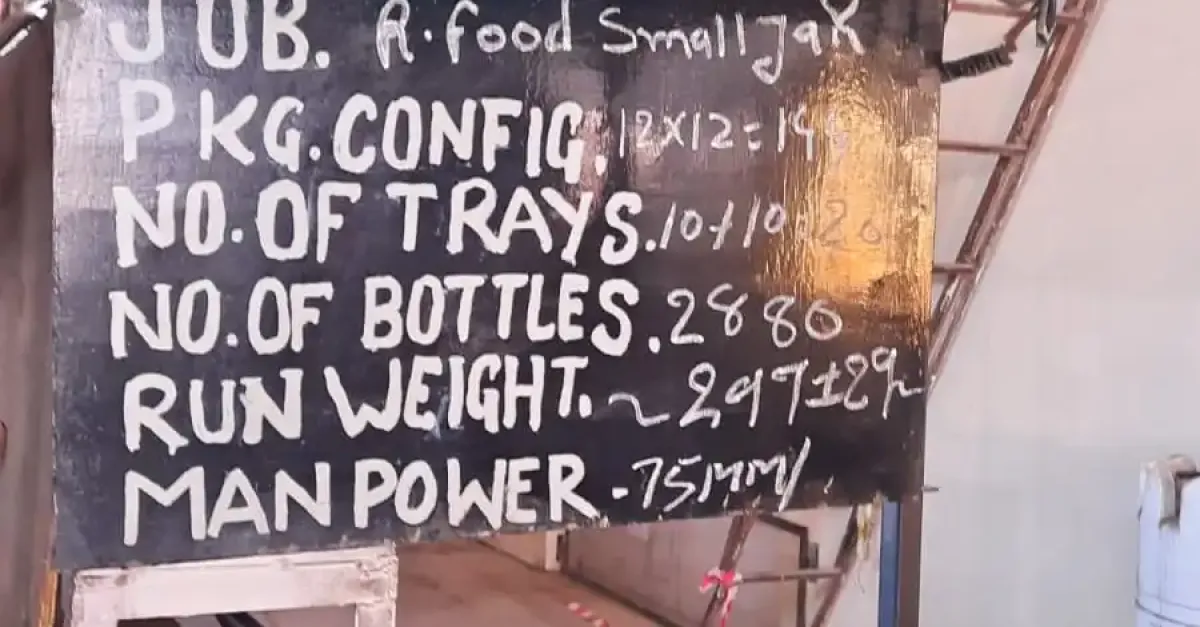 JOB. R. Food Small Jar
PKG. CONFIG. 12x12=144
NO. OF TRAYS. 10+10=20
NO. OF BOTTLES. 2880
RUN WEIGHT. ~297±2g
MAN POWER. 75